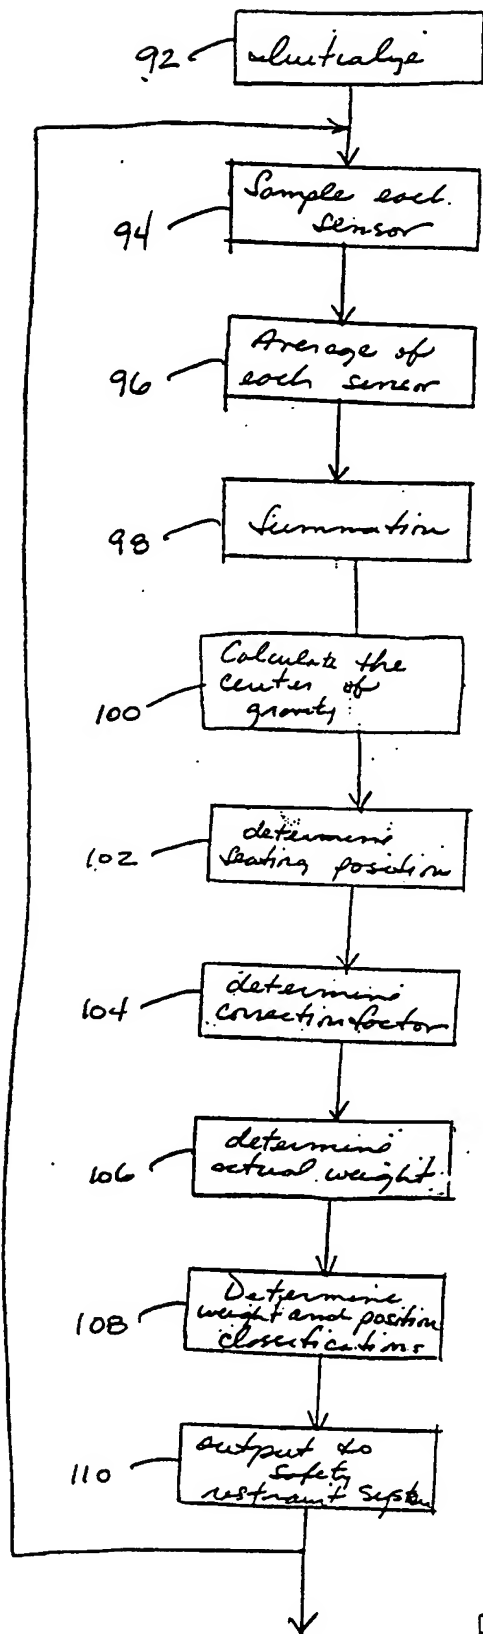 92
Initialize
94
Sample each
sensor
96
Average of
each sensor
98
Summation
100
Calculate the
center of
gravity
102
determine
seating position
104
determine
correction factor
106
determine
actual weight
108
Determine
weight and position
classifications
110
output to
safety
restraint system